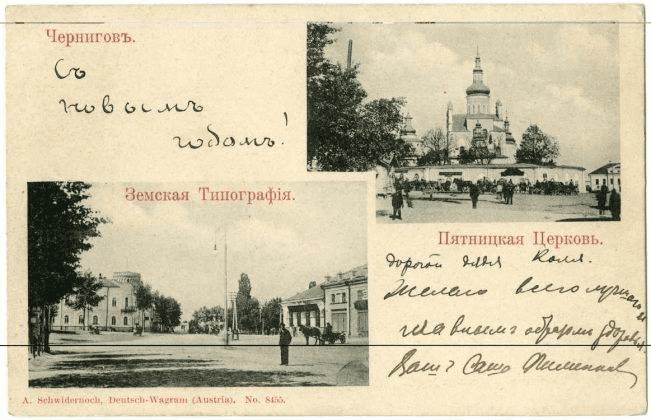 Черниговъ.
Съ
новымъ
годомъ!
Земская Типографія.
Пятницкая Церковь.
дорогой дядя Коля.
Желаю всего лучшаго и
главнымъ образомъ здоровья.
Вашъ Саша
A. Schwidernoch, Deutsch-Wagram (Austria). No. 8455.